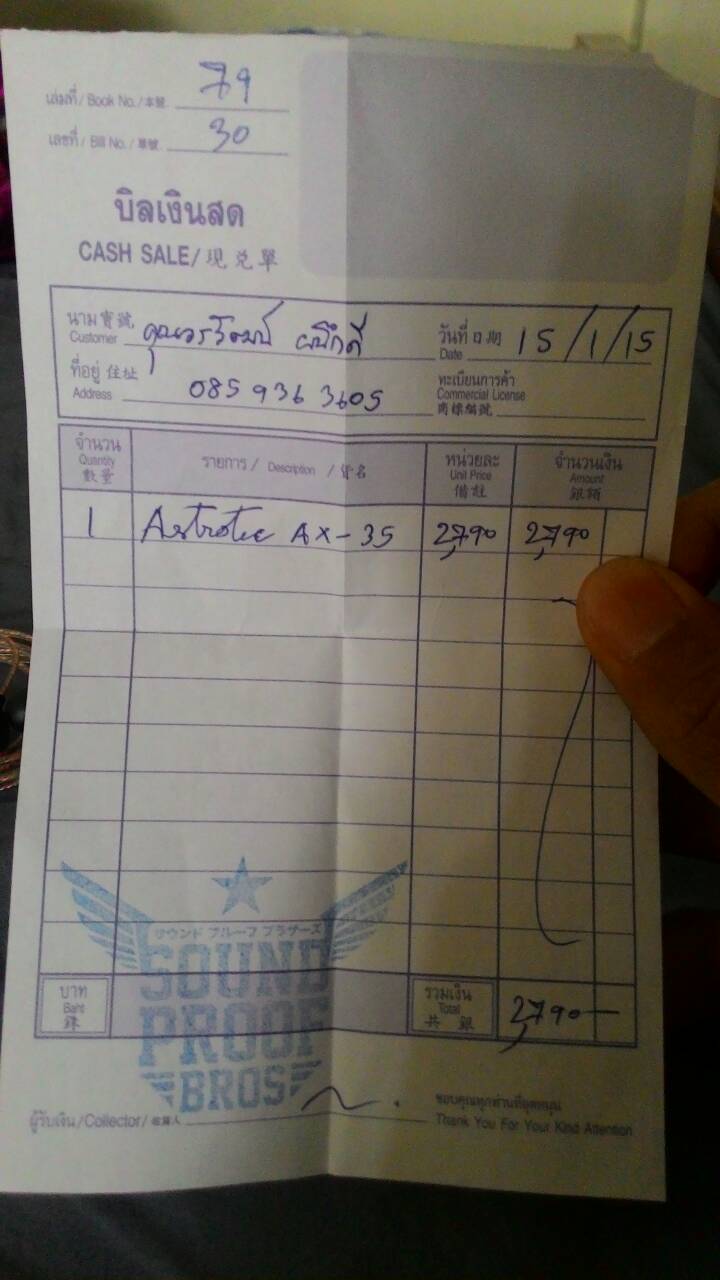 เล่มที่ / Book No. / 本號 79
เลขที่ / Bill No. / 單號 30
บิลเงินสด
CASH SALE/ 現兌單
นาม 寶號 คุณวรวัฒน์
Customer
วันที่ 日期 15/1/15
Date
ที่อยู่ 住址 085 936 3605
Address
ทะเบียนการค้า
Commercial License
商標編號
จำนวน รายการ / Description / 貨名 หน่วยละ จำนวนเงิน
Quantity Unit Price Amount
數量 備註 銀額
1 Astrotec AX-35 2,790 2,790
サウンド プルーフ ブラザーズ
SOUND
PROOF
BROS
บาท รวมเงิน 2,790-
Baht Total
銖 共銀
ผู้รับเงิน /Collector/ 收貨人
ขอบคุณทุกท่านที่อุดหนุน
Thank You For Your Kind Attention